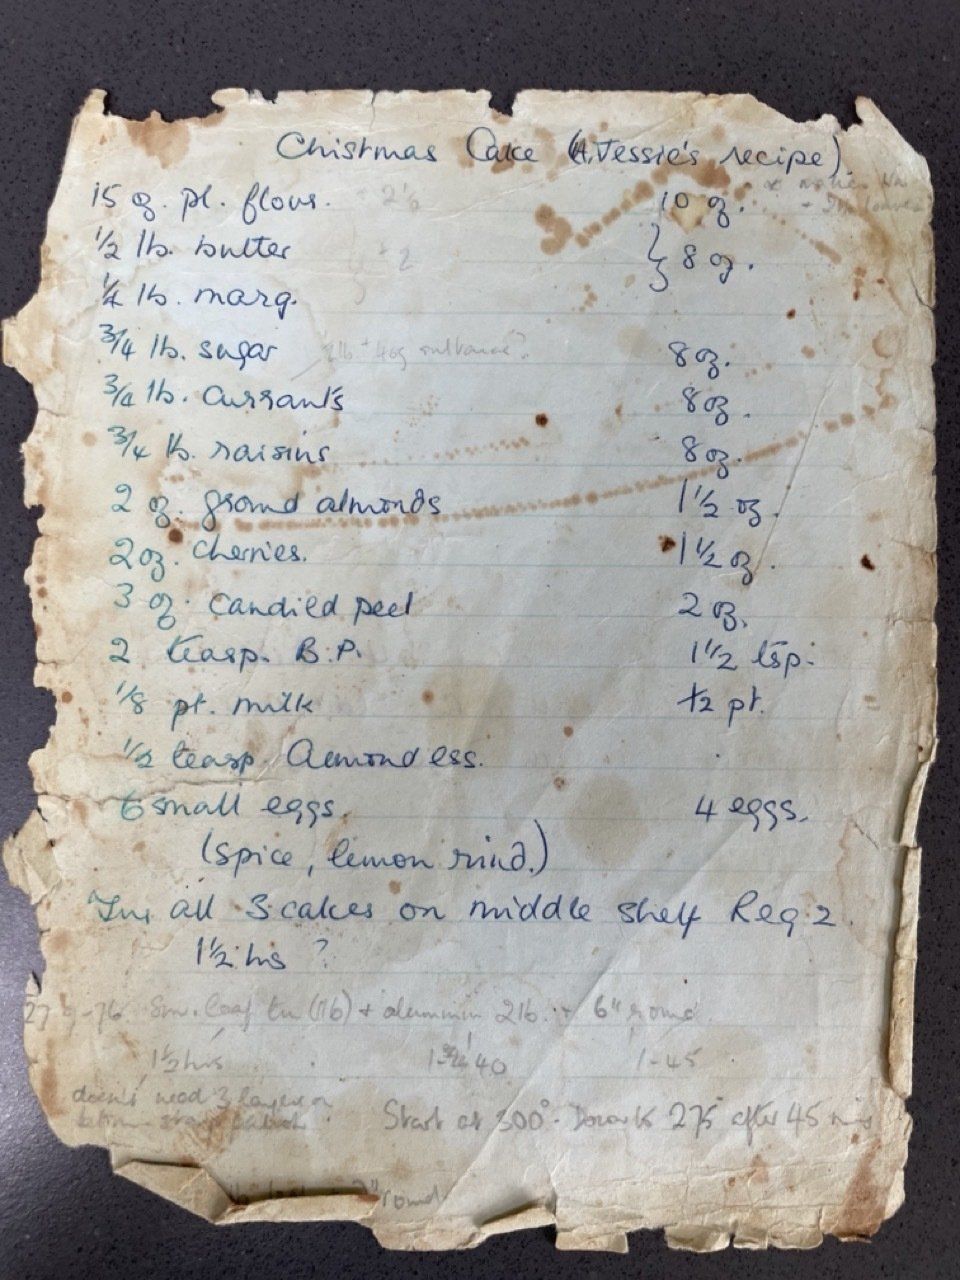 Chistmas Cake (A. Jessie's recipe)
15 oz. pl. flour. 2½ 10 oz.
½ lb. butter 2 } 8 oz.
¼ lb. marg.
¾ lb. sugar 8 oz.
¾ lb. currants 8 oz.
¾ lb. raisins 8 oz.
2 oz. ground almonds 1½ oz.
2 oz. cherries. 1½ oz.
3 oz. candied peel 2 oz.
2 teasp. B.P. 1½ tsp.
⅛ pt. milk ½ pt.
½ teasp. Almond ess.
6 small eggs. 4 eggs.
(spice, lemon rind.)
all 3 cakes on middle shelf Reg 2.
1½ hrs ?
Sm. loaf tin (1lb) + aluminium 2lb. + 6" round
1½ hrs 1-40 1-45
doesn't need 3 layers
Start at 300°. Down to 275 after 45 mins
round